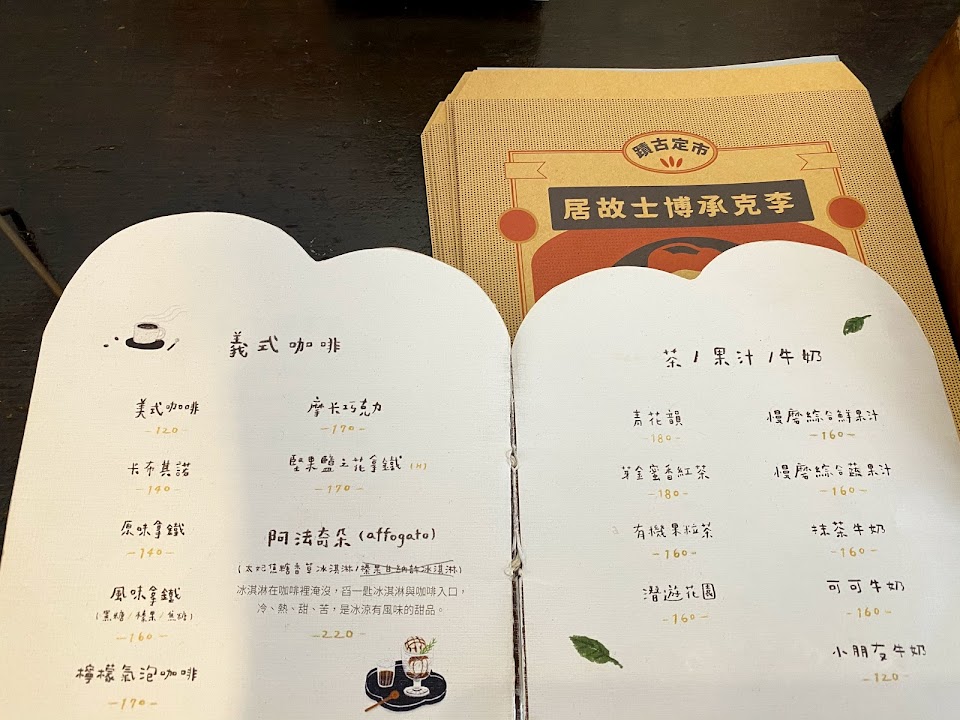 蹟古定市
居故士博承克李
義式咖啡
美式咖啡
-120-
卡布其諾
-140-
原味拿鐵
-140-
風味拿鐵
(黑糖/榛果/焦糖)
-160-
檸檬氣泡咖啡
-170-
摩卡巧克力
-170-
堅果鹽之花拿鐵 (H)
-170-
阿法奇朵 (affogato)
(太妃焦糖香草冰淇淋/榛果
冰淇淋)
冰淇淋在咖啡裡淹沒，舀一匙冰淇淋與咖啡入口，
冷、熱、甜、苦，是冰涼有風味的甜品。
-220-
茶/果汁/牛奶
青花韻
-180-
蜜香紅茶
-180-
有機果粒茶
-160-
潛遊花園
-160-
慢磨綜合鮮果汁
-160-
慢磨綜合蔬果汁
-160-
抹茶牛奶
-160-
可可牛奶
-160-
小朋友牛奶
-120-